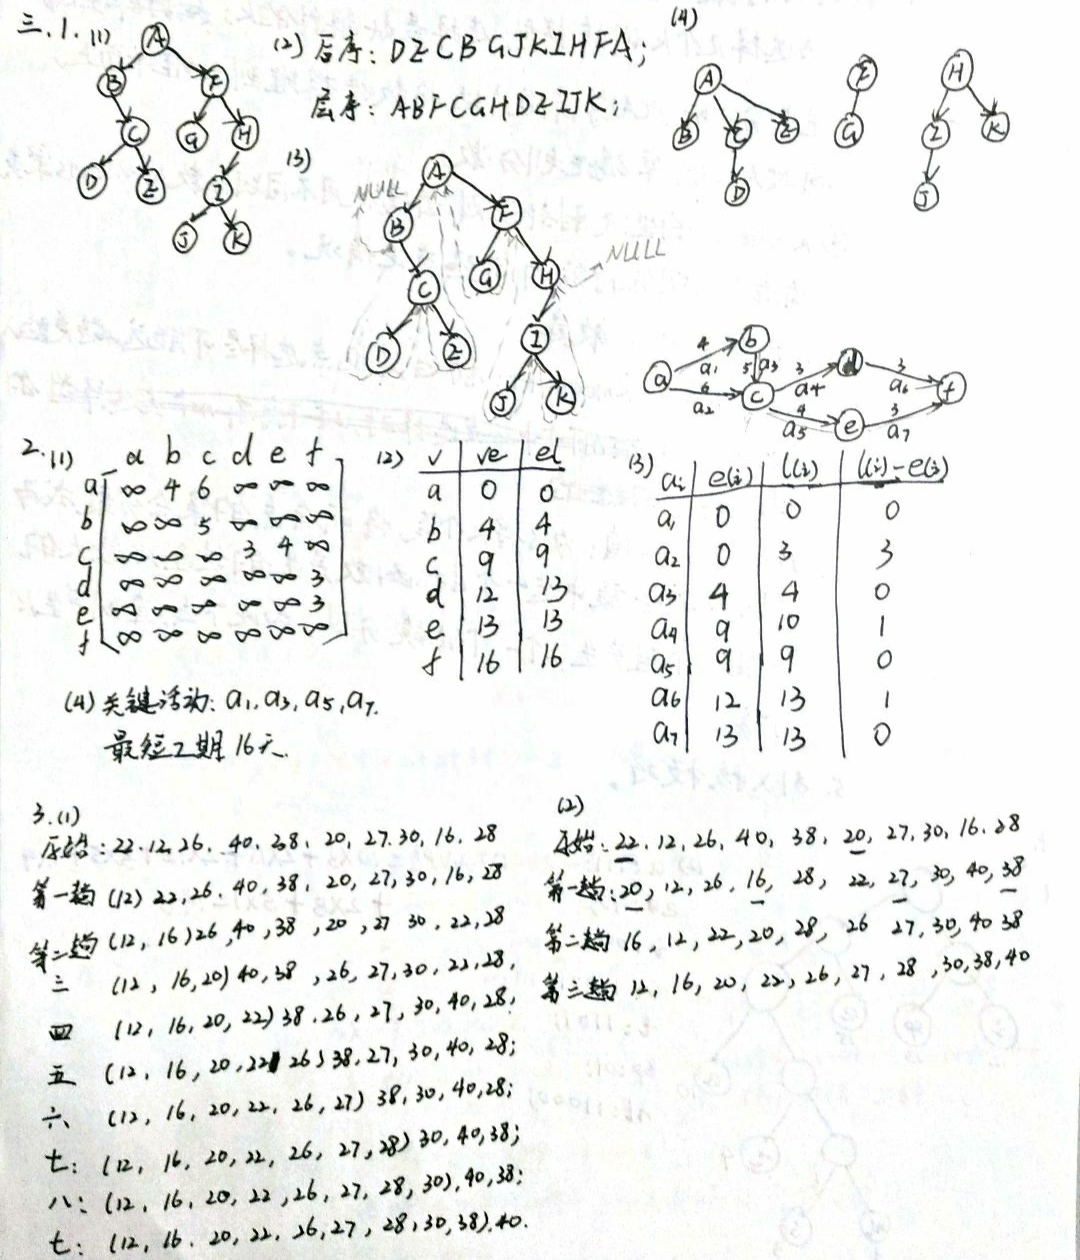 三.1.(1)
A
B F
C G H
D E I
J K
(2) 后序: DECBGJKIHFA;
层序: ABFCGHDEIJK;
(3)
A
NULL
B F
C G H NULL
D E I
J K
(4)
A F H
B C E G I K
D J
a b c d e f
4 a₁ 6 a₂ 5 a₃ 3 a₄ 4 a₅ 3 a₆ 3 a₇
2.(1)
a b c d e f
a ∞ 4 6 ∞ ∞ ∞
b ∞ ∞ 5 ∞ ∞ ∞
c ∞ ∞ ∞ 3 4 ∞
d ∞ ∞ ∞ ∞ ∞ 3
e ∞ ∞ ∞ ∞ ∞ 3
f ∞ ∞ ∞ ∞ ∞ ∞
(2) v ve el
a 0 0
b 4 4
c 9 9
d 12 13
e 13 13
f 16 16
(3) aᵢ e(i) l(i) l(i)-e(i)
a₁ 0 0 0
a₂ 0 3 3
a₃ 4 4 0
a₄ 9 10 1
a₅ 9 9 0
a₆ 12 13 1
a₇ 13 13 0
(4) 关键活动: a₁, a₃, a₅, a₇.
最短工期 16天.
3.(1)
原始: 22.12.26. 40. 38. 20, 27.30, 16. 28
第一趟 (12) 22,26. 40, 38, 20, 27, 30, 16, 28
第二趟 (12, 16) 26, 40, 38, 20, 27 30, 22, 28
三 (12, 16, 20) 40, 38, 26, 27, 30, 22, 28,
四 (12, 16, 20, 22) 38. 26, 27, 30, 40, 28;
五 (12, 16, 20, 22 26) 38, 27, 30, 40, 28;
六、 (12, 16, 20, 22, 26, 27) 38, 30, 40, 28;
七: (12, 16, 20, 22, 26, 27, 28) 30, 40, 38;
八: (12, 16, 20, 22, 26, 27, 28, 30), 40, 38;
七: (12, 16. 20, 22, 26, 27, 28, 30, 38), 40.
(2)
原始: 22, 12, 26, 40, 38, 20, 27, 30, 16. 28
第一趟: 20, 12, 26, 16, 28, 22, 27, 30, 40, 38
第二趟 16, 12, 22, 20, 28, 26 27, 30, 40 38
第三趟 12, 16, 20, 22, 26, 27, 28, 30, 38, 40